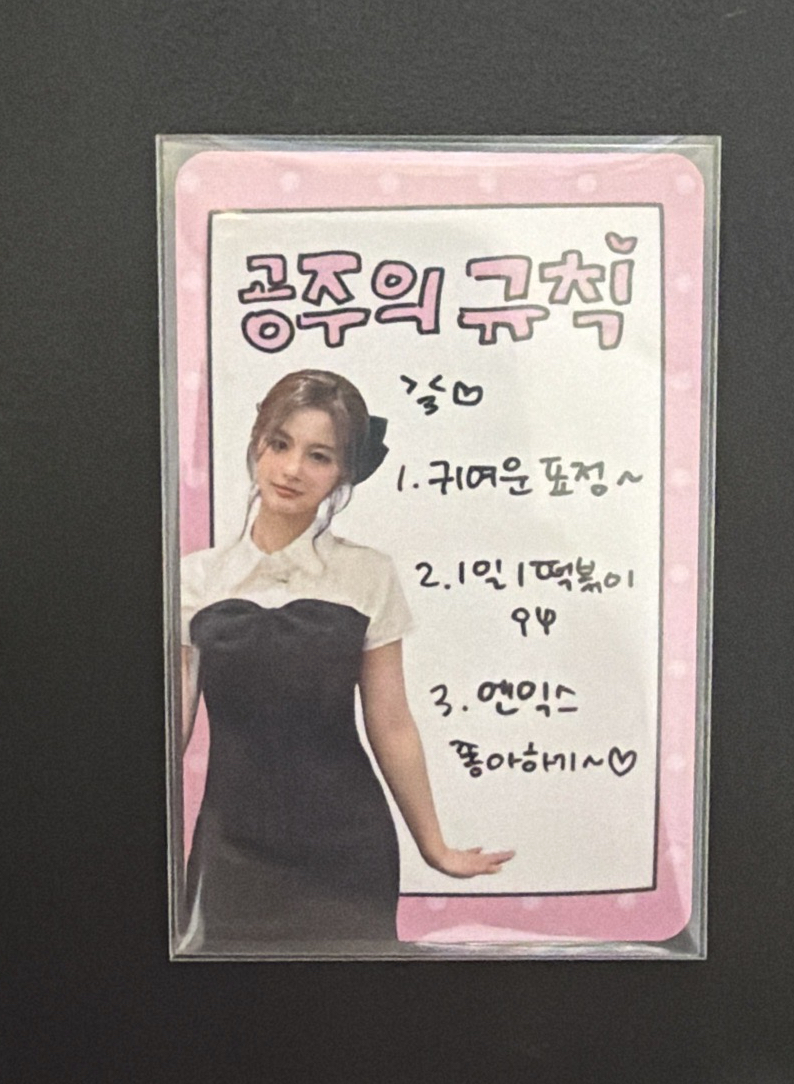 공주의 규칙
>3< ♡
1. 귀여운 표정~
2. 1일 1떡볶이
3. 엔믹스
쫗아하기~♡